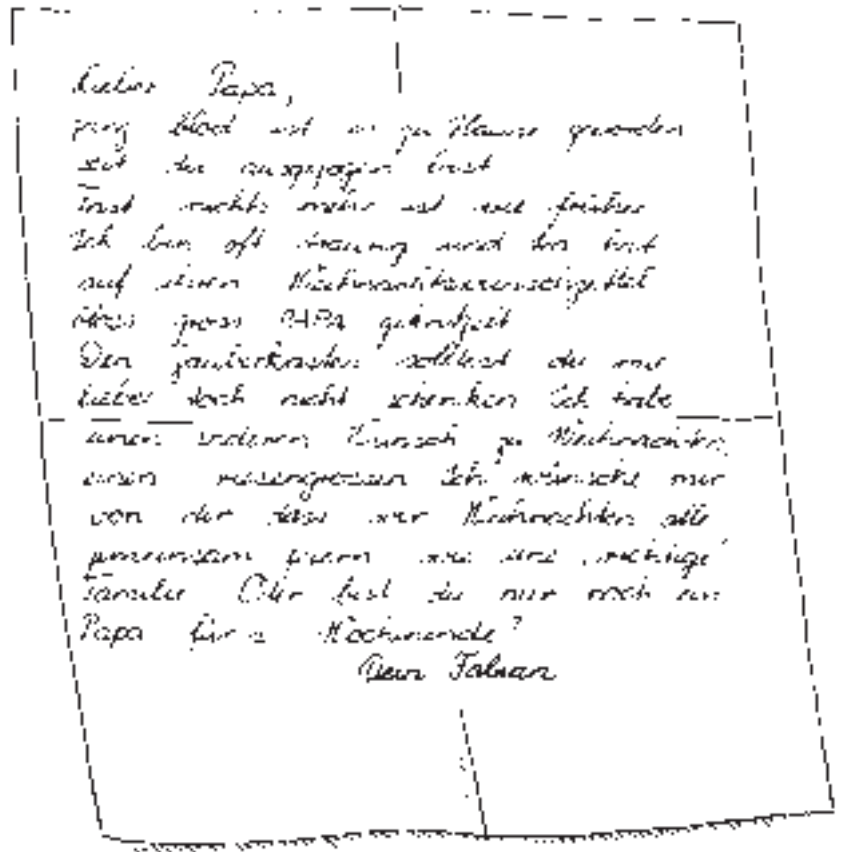 Lieber Papa,
ganz blöd ist es zu Hause geworden
seit du ausgezogen bist
Fast nichts mehr ist wie früher
Ich bin oft traurig und
auf einen
gross PAPA gekritzelt
Den Zauberkasten solltest du mir
lieber doch nicht schenken Ich habe
einen anderen Wunsch zu Weihnachten,
einen riesengrossen Ich wünsche mir
von dir dass wir Weihnachten alle
gemeinsam feiern wie eine „richtige"
Familie Oder bist du nur noch ein
Papa für's Wochenende?
Dein Fabian